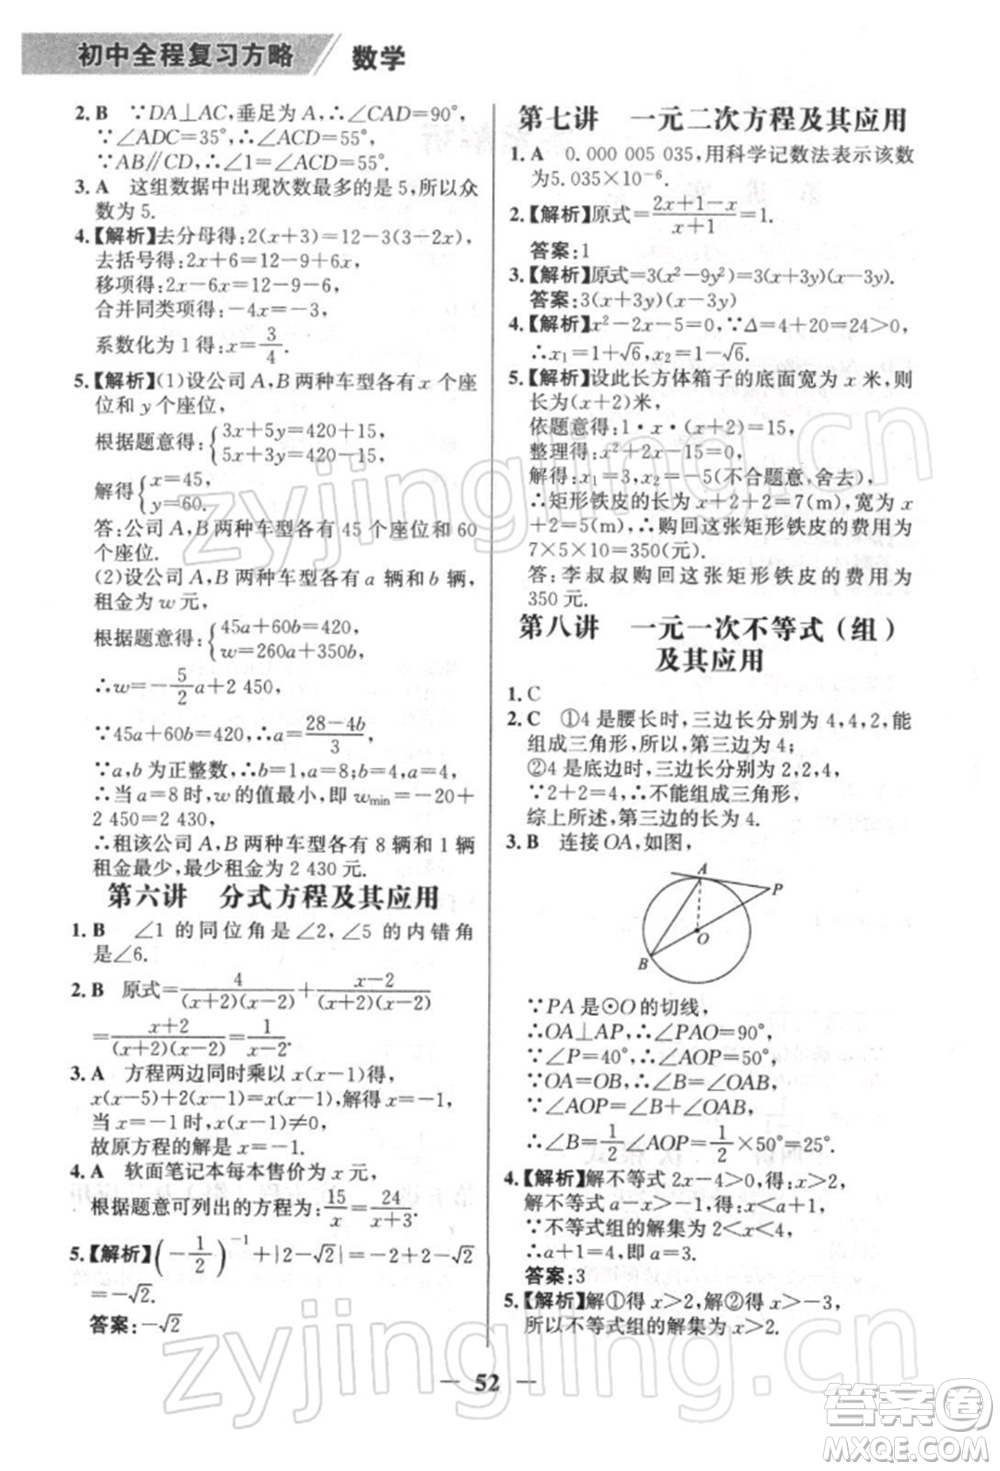 初中全程复习方略 数学
2. B ∵DA⊥AC,垂足为A,∴∠CAD=90°,
∵∠ADC=35°,∴∠ACD=55°,
∵AB∥CD,∴∠1=∠ACD=55°.
3. A 这组数据中出现次数最多的是5,所以众
数为5.
4.【解析】去分母得:2(x+3)=12-3(3-2x),
去括号得:2x+6=12-9+6x,
移项得:2x-6x=12-9-6,
合并同类项得:-4x=-3,
系数化为1得:x=3/4.
5.【解析】(1)设公司A,B两种车型各有x个座
位和y个座位,
根据题意得:{3x+5y=420+15,
5x+3y=420+15,
解得{x=45,
y=60.
答:公司A,B两种车型各有45个座位和60
个座位.
(2)设公司A,B两种车型各有a辆和b辆,
租金为w元,
根据题意得:{45a+60b=420,
w=260a+350b,
∴w=-5/2a+2 450,
∵45a+60b=420,∴a=(28-4b)/3,
∵a,b为正整数,∴b=1,a=8;b=4,a=4,
∴当a=8时,w的值最小,即wmin=-20+
2 450=2 430,
∴租该公司A,B两种车型各有8辆和1辆
租金最少,最少租金为2 430元.
第六讲 分式方程及其应用
1. B ∠1的同位角是∠2,∠5的内错角
是∠6.
2. B 原式=4/((x+2)(x-2))+(x-2)/((x+2)(x-2))
=(x+2)/((x+2)(x-2))=1/(x-2).
3. A 方程两边同时乘以x(x-1)得,
x(x-5)+2(x-1)=x(x-1),解得x=-1,
当x=-1时,x(x-1)≠0,
故原方程的解是x=-1.
4. A 软面笔记本每本售价为x元,
根据题意可列出的方程为:15/x=24/(x+3).
5.【解析】(-1/2)⁻¹+|2-√2|=-2+2-√2
=-√2.
答案:-√2
第七讲 一元二次方程及其应用
1. A 0.000 005 035,用科学记数法表示该数
为5.035×10⁻⁶.
2.【解析】原式=(2x+1-x)/(x+1)=1.
答案:1
3.【解析】原式=3(x²-9y²)=3(x+3y)(x-3y).
答案:3(x+3y)(x-3y)
4.【解析】x²-2x-5=0,∵Δ=4+20=24>0,
∴x₁=1+√6,x₂=1-√6.
5.【解析】设此长方体箱子的底面宽为x米,则
长为(x+2)米,
依题意得:1·x·(x+2)=15,
整理得:x²+2x-15=0,
解得:x₁=3,x₂=-5(不合题意,舍去),
∴矩形铁皮的长为x+2+2=7(m),宽为x+
2=5(m),∴购回这张矩形铁皮的费用为
7×5×10=350(元).
答:李叔叔购回这张矩形铁皮的费用为
350元.
第八讲 一元一次不等式(组)
及其应用
1. C
2. C ①4是腰长时,三边长分别为4,4,2,能
组成三角形,所以,第三边为4;
②4是底边时,三边长分别为2,2,4,
∵2+2=4,∴不能组成三角形,
综上所述,第三边的长为4.
3. B 连接OA,如图,
A
P
O
B
∵PA是⊙O的切线,
∴OA⊥AP,∴∠PAO=90°,
∵∠P=40°,∴∠AOP=50°,
∵OA=OB,∴∠B=∠OAB,
∵∠AOP=∠B+∠OAB,
∴∠B=1/2∠AOP=1/2×50°=25°.
4.【解析】解不等式2x-4>0,得:x>2,
解不等式-x+a>-1,得:x<a+1,
∵不等式组的解集为2<x<4,
∴a+1=4,即a=3,
答案:3
5.【解析】解①得x>2,解②得x>-3,
所以不等式组的解集为x>2.
52
zyjingling.cn
zyjingling.cn
答案卷
MXQE.COM